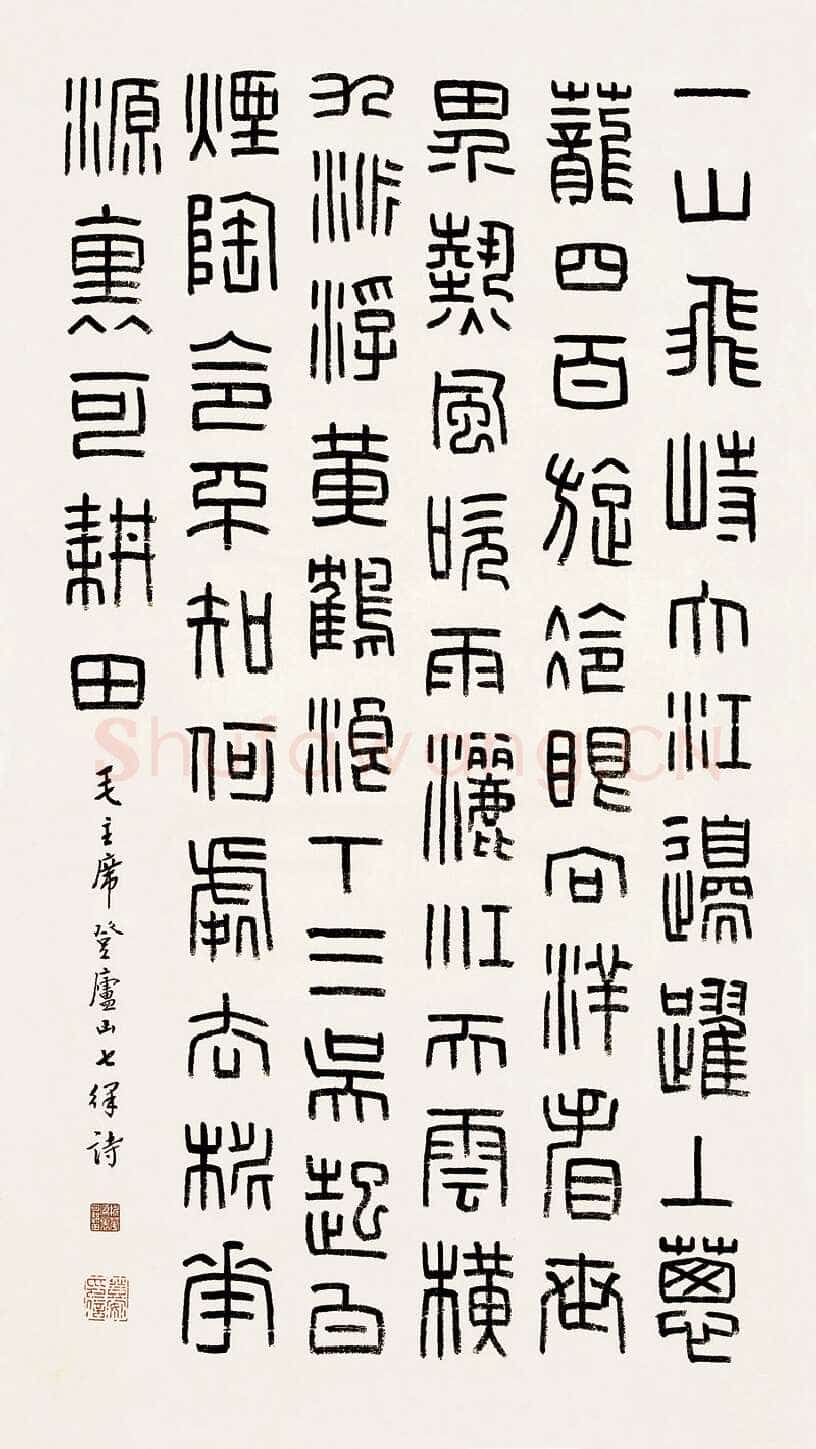 一山飛峙大江邊躍上蔥
蘢四百旋冷眼向洋看世
界熱風吹雨灑江天雲橫
九派浮黃鶴浪下三吳起白
煙陶令不知何處去桃花
源裏可耕田
毛主席登廬山七律詩
Shufawang.CN